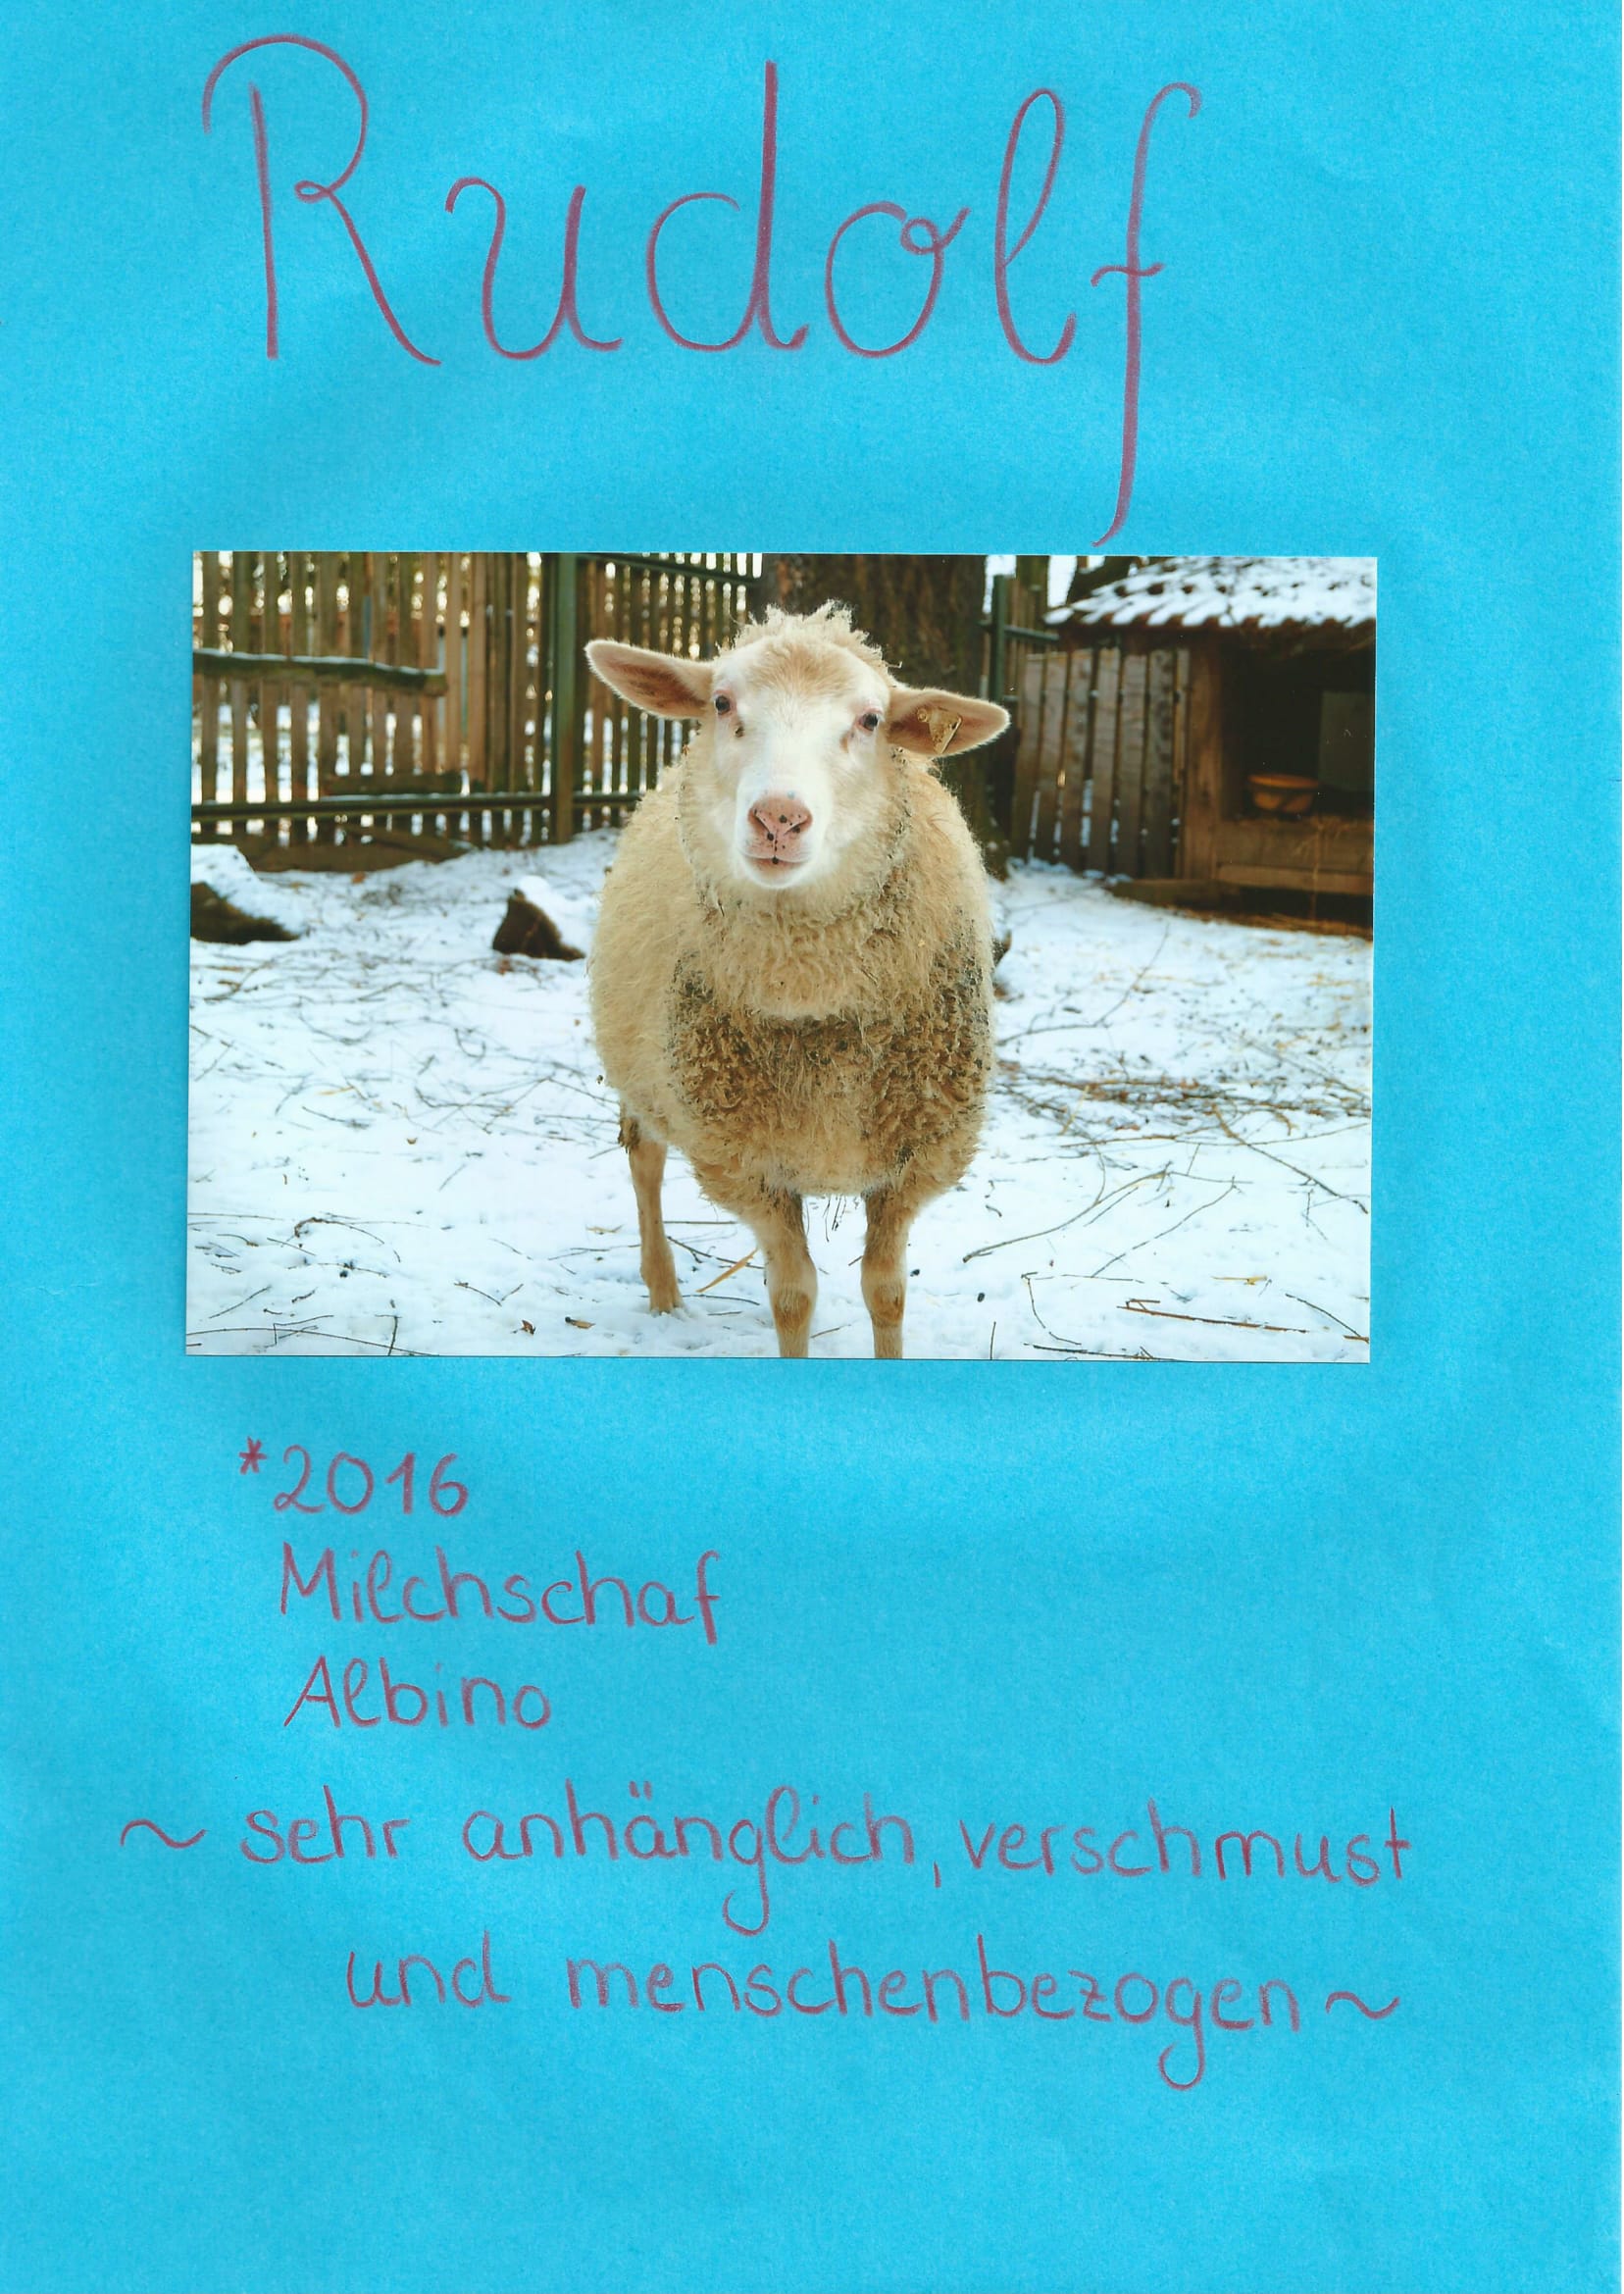 Rudolf
*2016
Milchschaf
Albino
~ sehr anhänglich, verschmust
und menschenbezogen ~